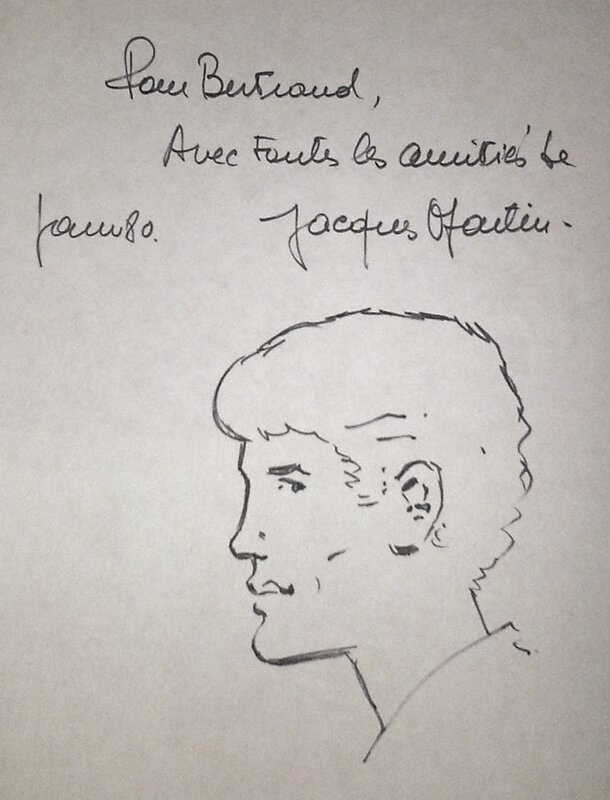 Pour Bertrand,
Avec toutes les amitiés de
Janv 80. Jacques Martin.